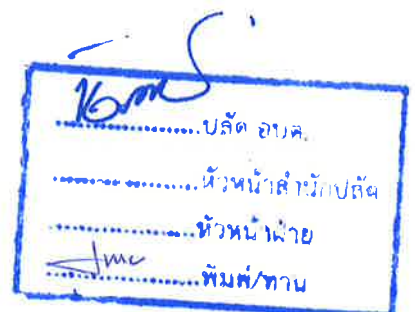 ....................ปลัด อบต.
....................หัวหน้าสำนักปลัด
....................หัวหน้าฝ่าย
....................พิมพ์/ทาน